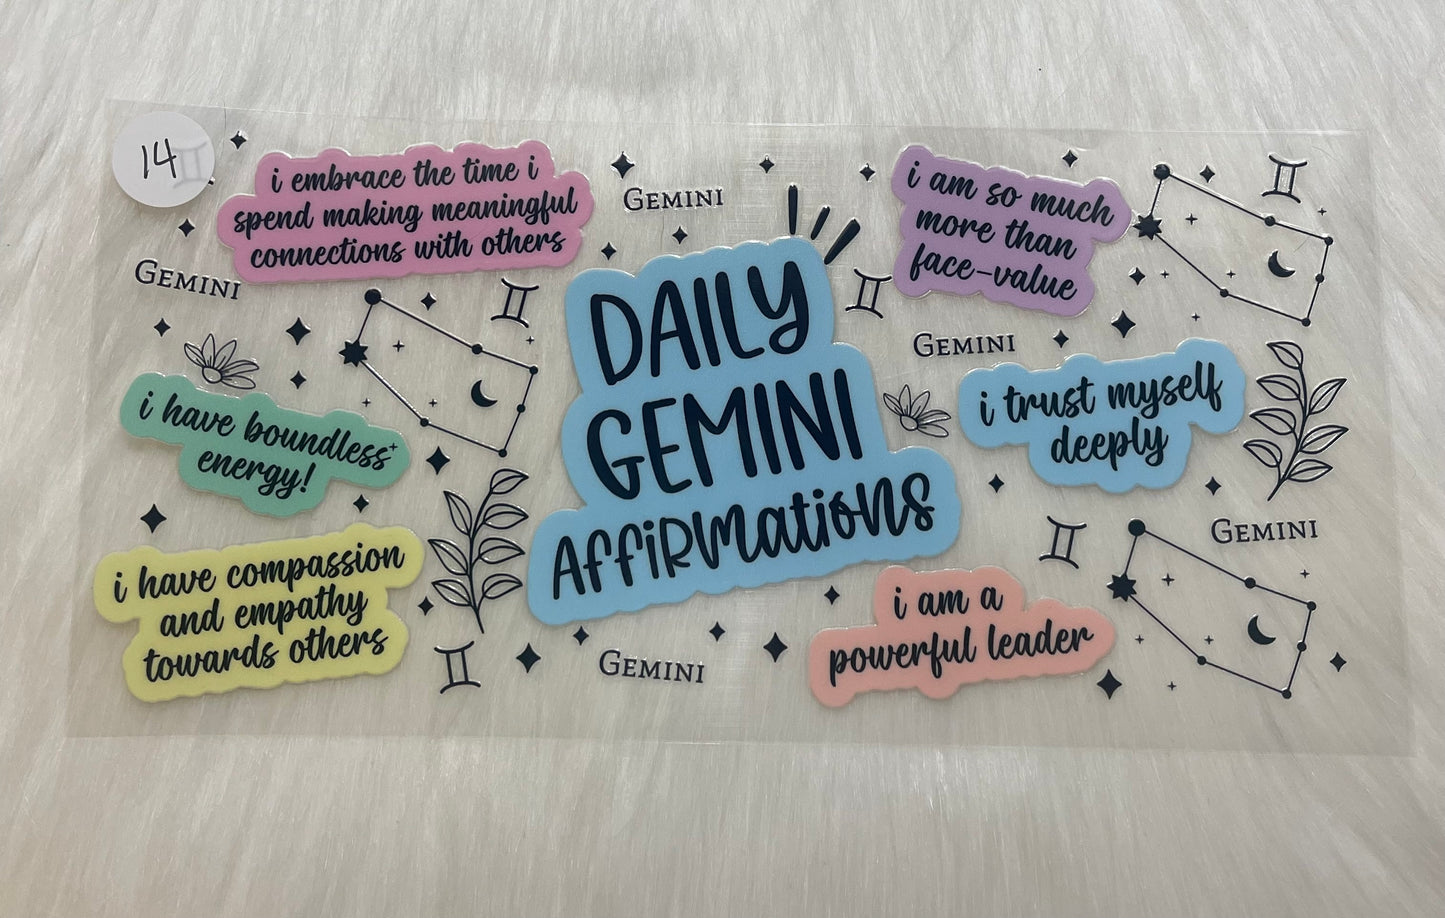 14
i embrace the time i
spend making meaningful
connections with others
GEMINI
i am so much
more than
face-value
GEMINI
DAILY
GEMINI
AFFIRMATIONS
GEMINI
i have boundless
energy!
i trust myself
deeply
i have compassion
and empathy
towards others
GEMINI
i am a
powerful leader
GEMINI